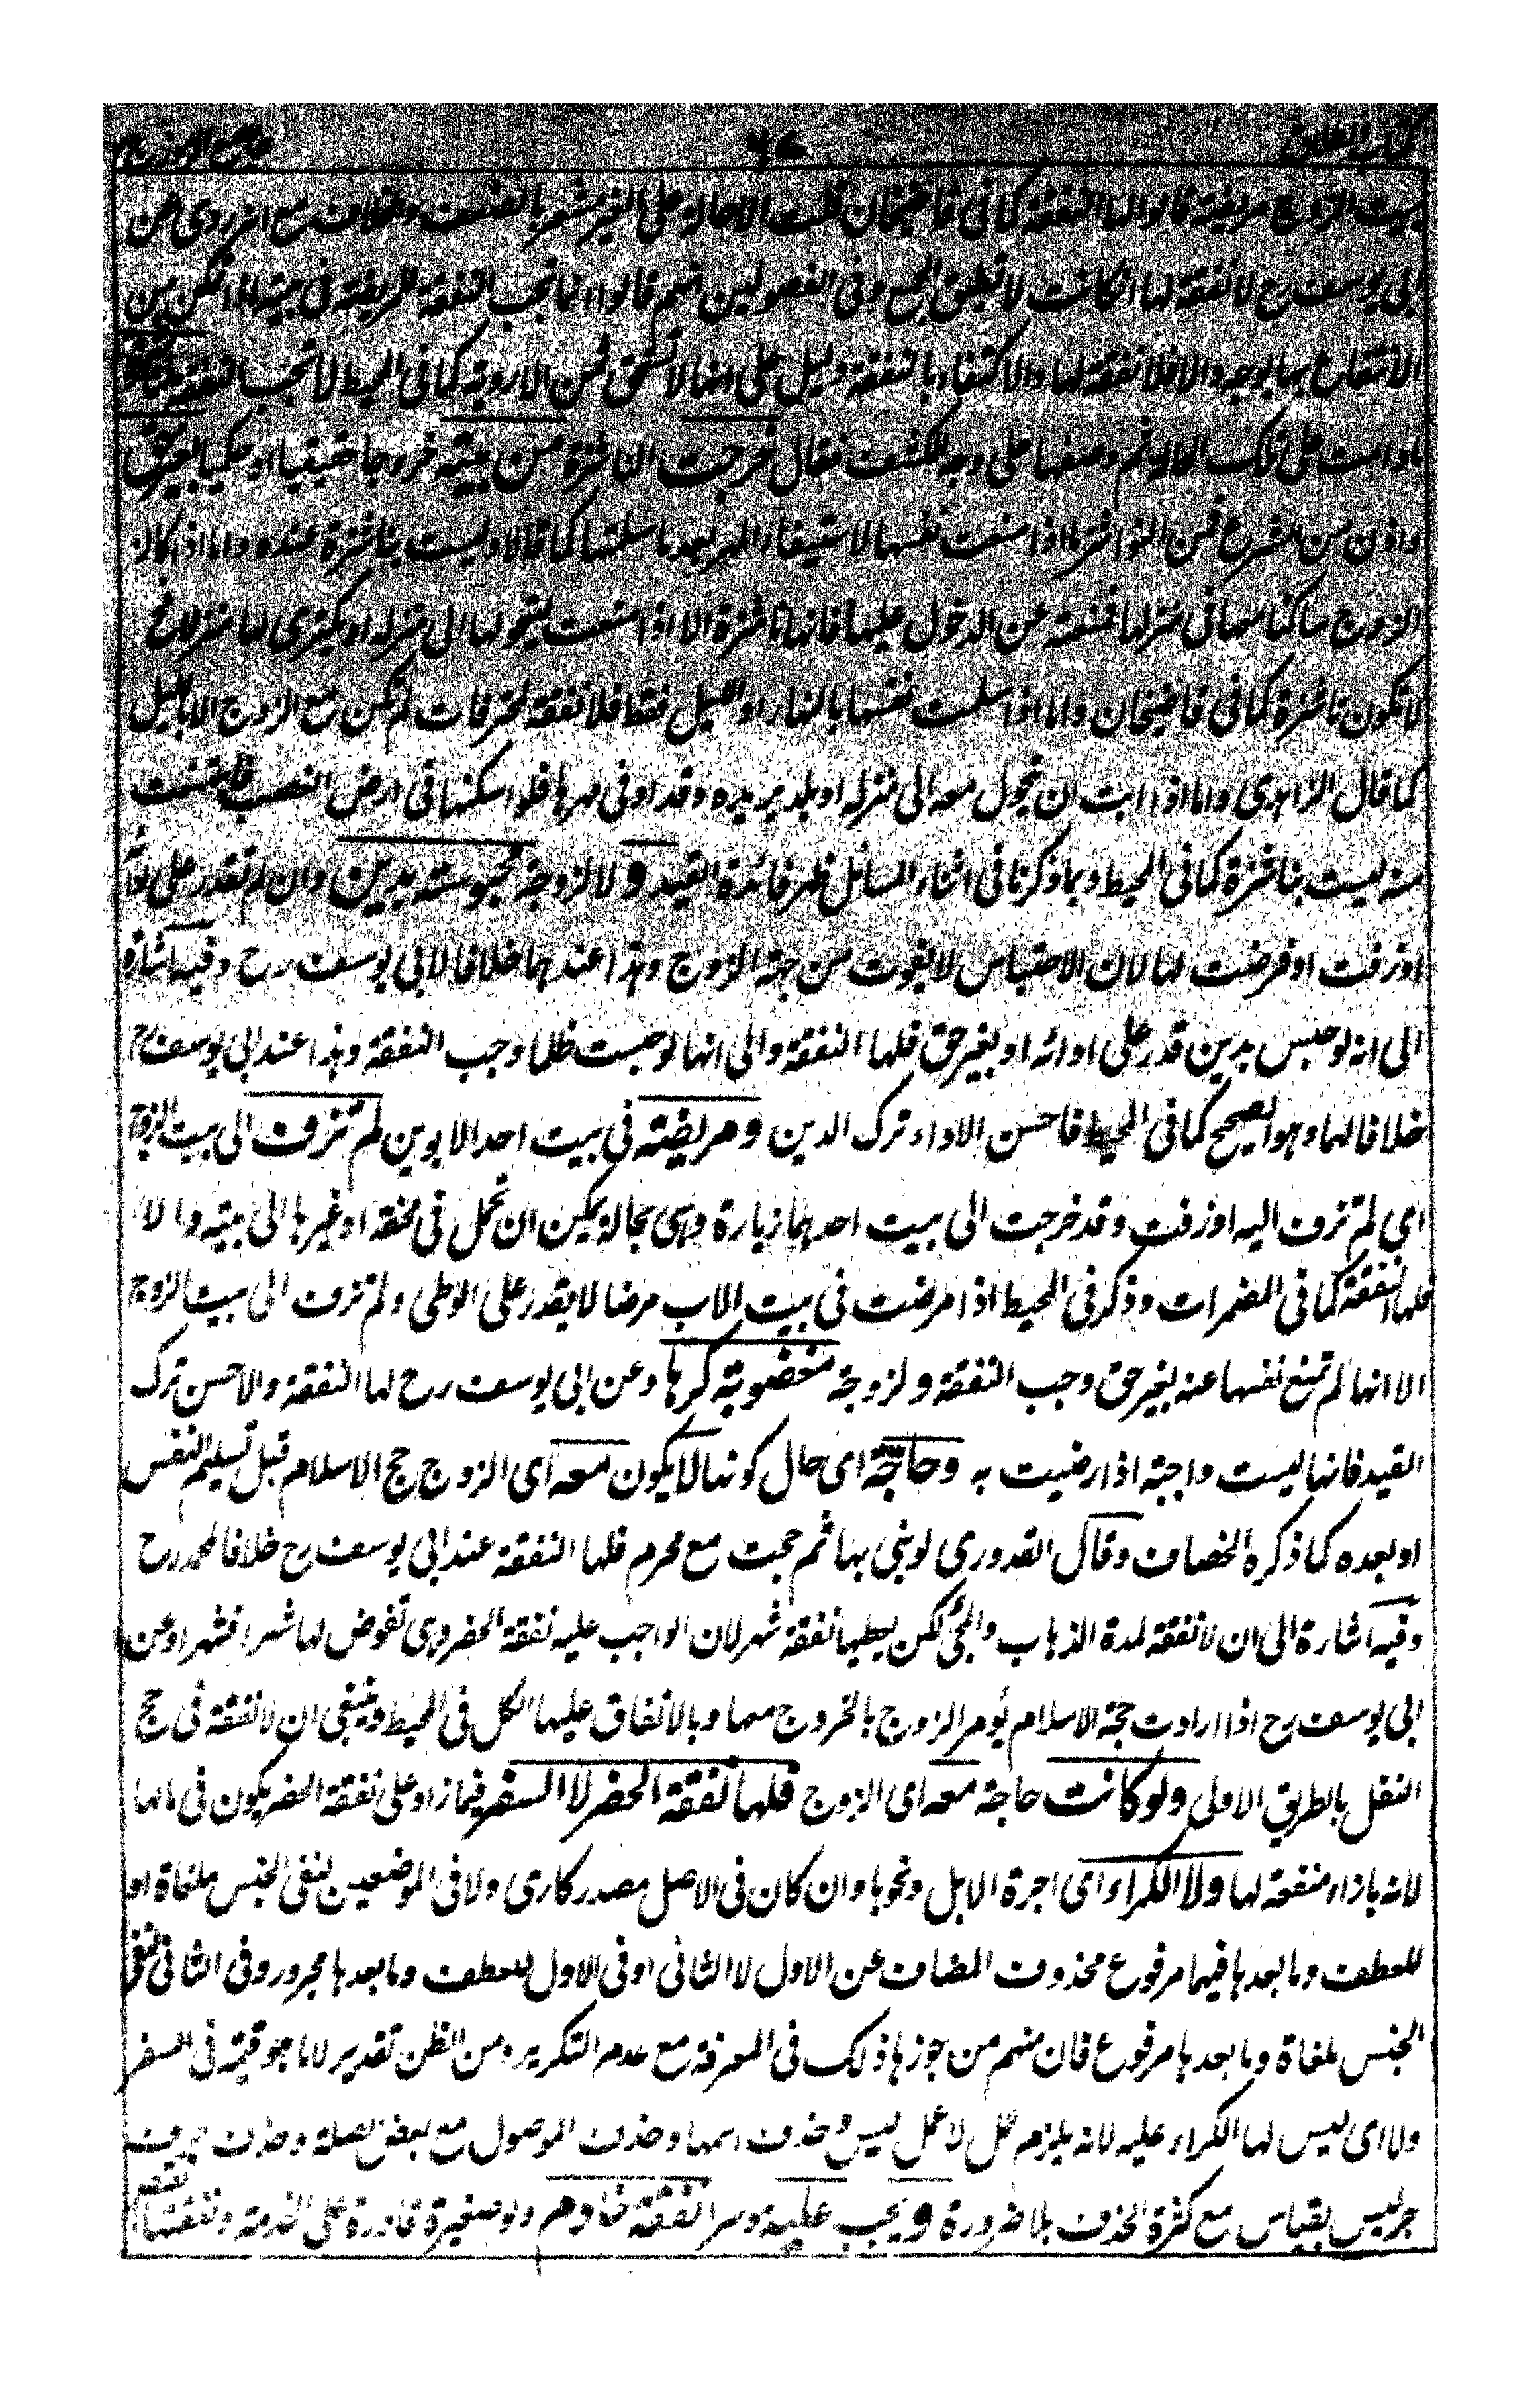 كتاب الطلاق ٤٧ جامع الرموز
بيت الزوج مريضة قالوا لها النفقة كما فى قاضيخان قلت الاحالة على الغير مشعر بالضعف وخلافه مع انه روى عن
ابى يوسف رح لا نفقة لها ان كانت لا تطيق الجماع وفى الفصولين انهم قالوا انما تجب النفقة للمريضة فى بيته اذا امكن من
الانتفاع بها بوجه والا فلا نفقة لها والاكتفاء بالنفقة دليل على انها لا تستحق ثمن الادوية كما فى المحيط لا تجب النفقة
ما دامت على تلك الحالة ثم وصفها على وجه الكشف فقال خرجت الناشزة من بيته خروجا حقيقيا او حكميا بغير حق
واذن من الشرع فمن النواشز ما اذا منعت نفسها لاستيفاء المهر بعد ما سلمتها كما قالا وليست بناشزة عنده واما اذا كان
الزوج ساكنا معها فى منزلها فمنعته عن الدخول عليها فانها ناشزة الا اذا منعت ليحولها الى منزله او يكترى لها منزلا فح
لا تكون ناشزة كما فى قاضيخان واما اذا سلمت نفسها بالنهار او الليل فقط فلا نفقة لمحترفات لم تكن مع الزوج الا بالليل
كما قال الزاهدى واما اذا ابت ان تحول معه الى منزله او بلد يريده وقد اوفى مهرها فلو اسكنها فى ارض الغصب فامتنعت
منه ليست بناشزة كما فى المحيط وبما ذكرنا فى اثناء المسائل ظهر فائدة القيد ولا لزوجة محبوسة بدين وان لم تقدر على
او زفت او فرضت لها لان الاحتباس لا يفوت من جهة الزوج وهذا عندهما خلافا لابى يوسف رح وفيه اشارة
الى انه لو حبس بدين قدر على ادائه او بغير حق فلها النفقة والى انها لو حبست ظلما وجب النفقة وهذا عند ابى يوسف رح
خلافا لهما وهو الصحيح كما فى المحيط فاحسن الاداء ترك الدين ومريضة فى بيت احد الابوين لم تزف الى بيت الزوج
اى لم تزف اليه او زفت وقد خرجت الى بيت احدهما زيارة وهى بحالة يمكن ان تحمل فى محفة او غيرها الى بيته والا
فلها النفقة كما فى المضمرات وذكر فى المحيط اذا مرضت فى بيت الاب مرضا لا يقدر على الوطى ولم تزف الى بيت الزوج
الا انها لم تمنع نفسها عنه بغير حق وجب النفقة ولزوجة مغصوبة كرها وعن ابى يوسف رح لها النفقة والاحسن ترك
القيد فانها ليست واجبة اذا رضيت به وحاجة اى حال كونها لا يكون معه اى الزوج حج الاسلام قبل تسليم النفس
او بعده كما ذكره الخصاف وقال القدورى لو بنى بها ثم حجت مع محرم فلها النفقة عند ابى يوسف رح خلافا لمحمد رح
وفيه اشارة الى ان لا نفقة لمدة الذهاب والمجئ لكن يعطيها نفقة شهر لان الواجب عليه نفقة الحضر وهى تفرض لها شهرا فشهرا وعن
ابى يوسف رح اذا ارادت حجة الاسلام يؤمر الزوج بالخروج معها وبالانفاق عليها الكل فى المحيط وينبغى ان لا نفقة فى حج
النفل بالطريق الاولى ولو كانت حاجة معه اى الزوج فلها نفقة الحضر لا السفر فما زاد على نفقة الحضر يكون فى مالها
لانه بازاء منفعة لها ولا الكراء اى اجرة الابل ونحوها وان كان فى الاصل مصدر كارى ولا فى الموضعين لنفى الجنس ملغاة او
للعطف وما بعدها فيهما مرفوع محذوف المضاف عن الاول لا الثانى او فى الاول للعطف وما بعدها مجرور وفى الثانى لنفى
الجنس ملغاة وما بعدها مرفوع فان منهم من جوز ذلك فى المعرفة مع عدم التكرير ومن الظن تقدير لا ما هو قيمته فى السفر
ولا اى ليس لها الكراء عليه لانه يلزم عمل لا عمل ليس وحذف اسمها وحذف الموصول مع بعض صلته وحذف حرف
جر ليس بقياس مع كثرة الحذف بلا ضرورة ويجب عليه موسرا نفقة خادم ولو صغيرة قادرة على الخدمة ونفقتها